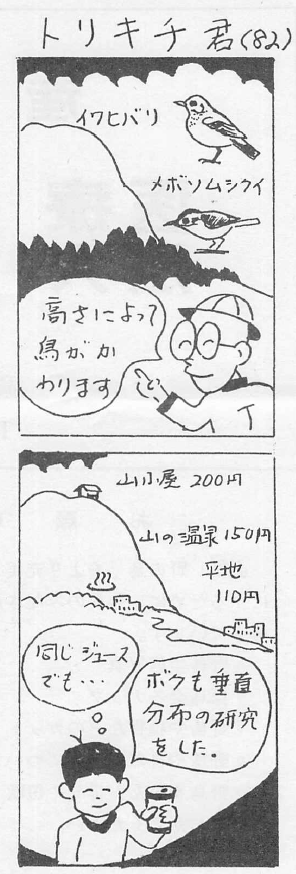 トリキチ君(82)
イワヒバリ
メボソムシクイ
高さによって
鳥がか
わります
山小屋 200円
山の温泉 150円
平地
110円
同じジュース
でも・・・
ボクも垂直
分布の研究
をした。